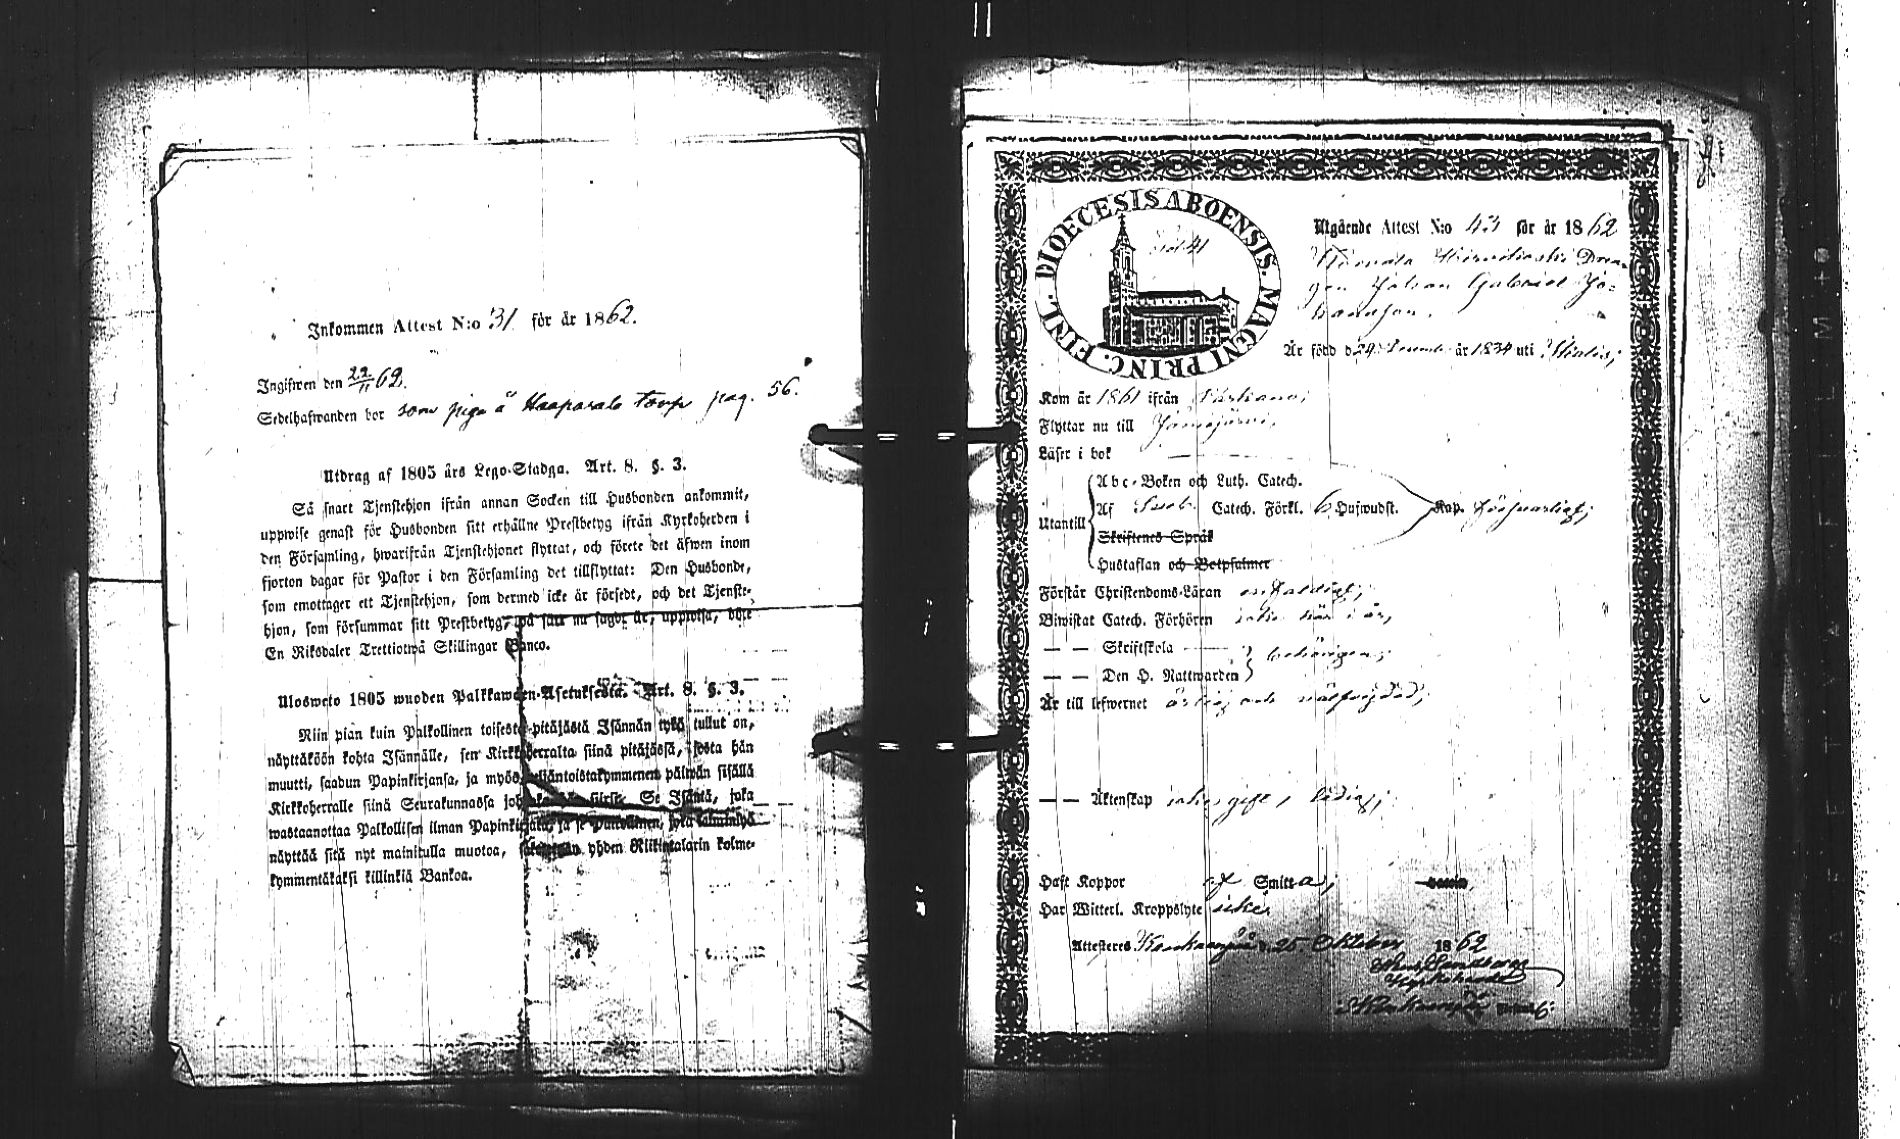 Inkommen Attest N:o 31 för år 1862.
Ingifwen den 22/11 62.
Sedelhafwanden bor som piga å Haaparalo torp pag. 56.
Utdrag af 1805 års Lego-Stadga. Art. 8. §. 3.
Så snart Tjenstehjon ifrån annan Socken till Husbonden ankommit,
uppwise genast för Husbonden sitt erhållne Prestbetyg ifrån Kyrkoherden i
den Församling, hwarifrån Tjenstehjonet flyttat, och förete det äfwen inom
fjorton dagar för Pastor i den Församling det tillflyttat: Den Husbonde,
som emottager ett Tjenstehjon, som dermed icke är försedt, och det Tjenste-
hjon, som försummar sitt Prestbetyg, på sätt nu sagdt är, uppwisa, böte
En Riksdaler Trettiotwå Skillingar Banco.
Ulosweto 1805 wuoden Palkkawäen-Asetuksesta. Art. 8. §. 3.
Niin pian kuin Palkollinen toisesta pitäjästä Isännän tykö tullut on,
näyttäköön kohta Isännälle, sen Kirkkoherralta siinä pitäjässä, josta hän
muutti, saadun Papinkirjansa, ja myös neljäntoistakymmenen päiwän sisällä
Kirkkoherralle siinä Seurakunnassa johonka hän siirsi. Se Isäntä, joka
wastaanottaa Palkollisen ilman Papinkirjata, ja se Palkollinen, joka
näyttää sitä nyt mainitulla muotoa, yhden Riikintalarin kolme-
kymmentäkaksi killinkiä Bankoa.
DIOECESIS ABOENSIS. MAGNI PRINC. FINL.
41
Utgående Attest N:o 43 för år 1862
Drän-
gen Johan Gabriel Jo-
hansson.
Är född d. 24 December år 1834 uti
Kom år 1861 ifrån Parkano;
Flyttar nu till Jämijärvi,
Läser i bok
Abc-Boken och Luth. Catech.
Utantill Af Sweb. Catech. Förkl. 6 Hufwudst. Kap. försvarligt;
Skriftenes Språk
Hustaflan och Botpsalmer
Förstår Christendoms-Läran enfaldigt;
Biwistat Catech. Förhören icke här i år,
— — Skriftskola behörigen;
— — Den H. Nattwarden
Är till lefwernet ärlig och wälfrejdad;
— — Äktenskap icke gift, ledig;
Haft Koppor af Smitta;
Har Witterl. Kroppslyte icke.
Attesteres Kankaanpää d. 25 Oktober 1862